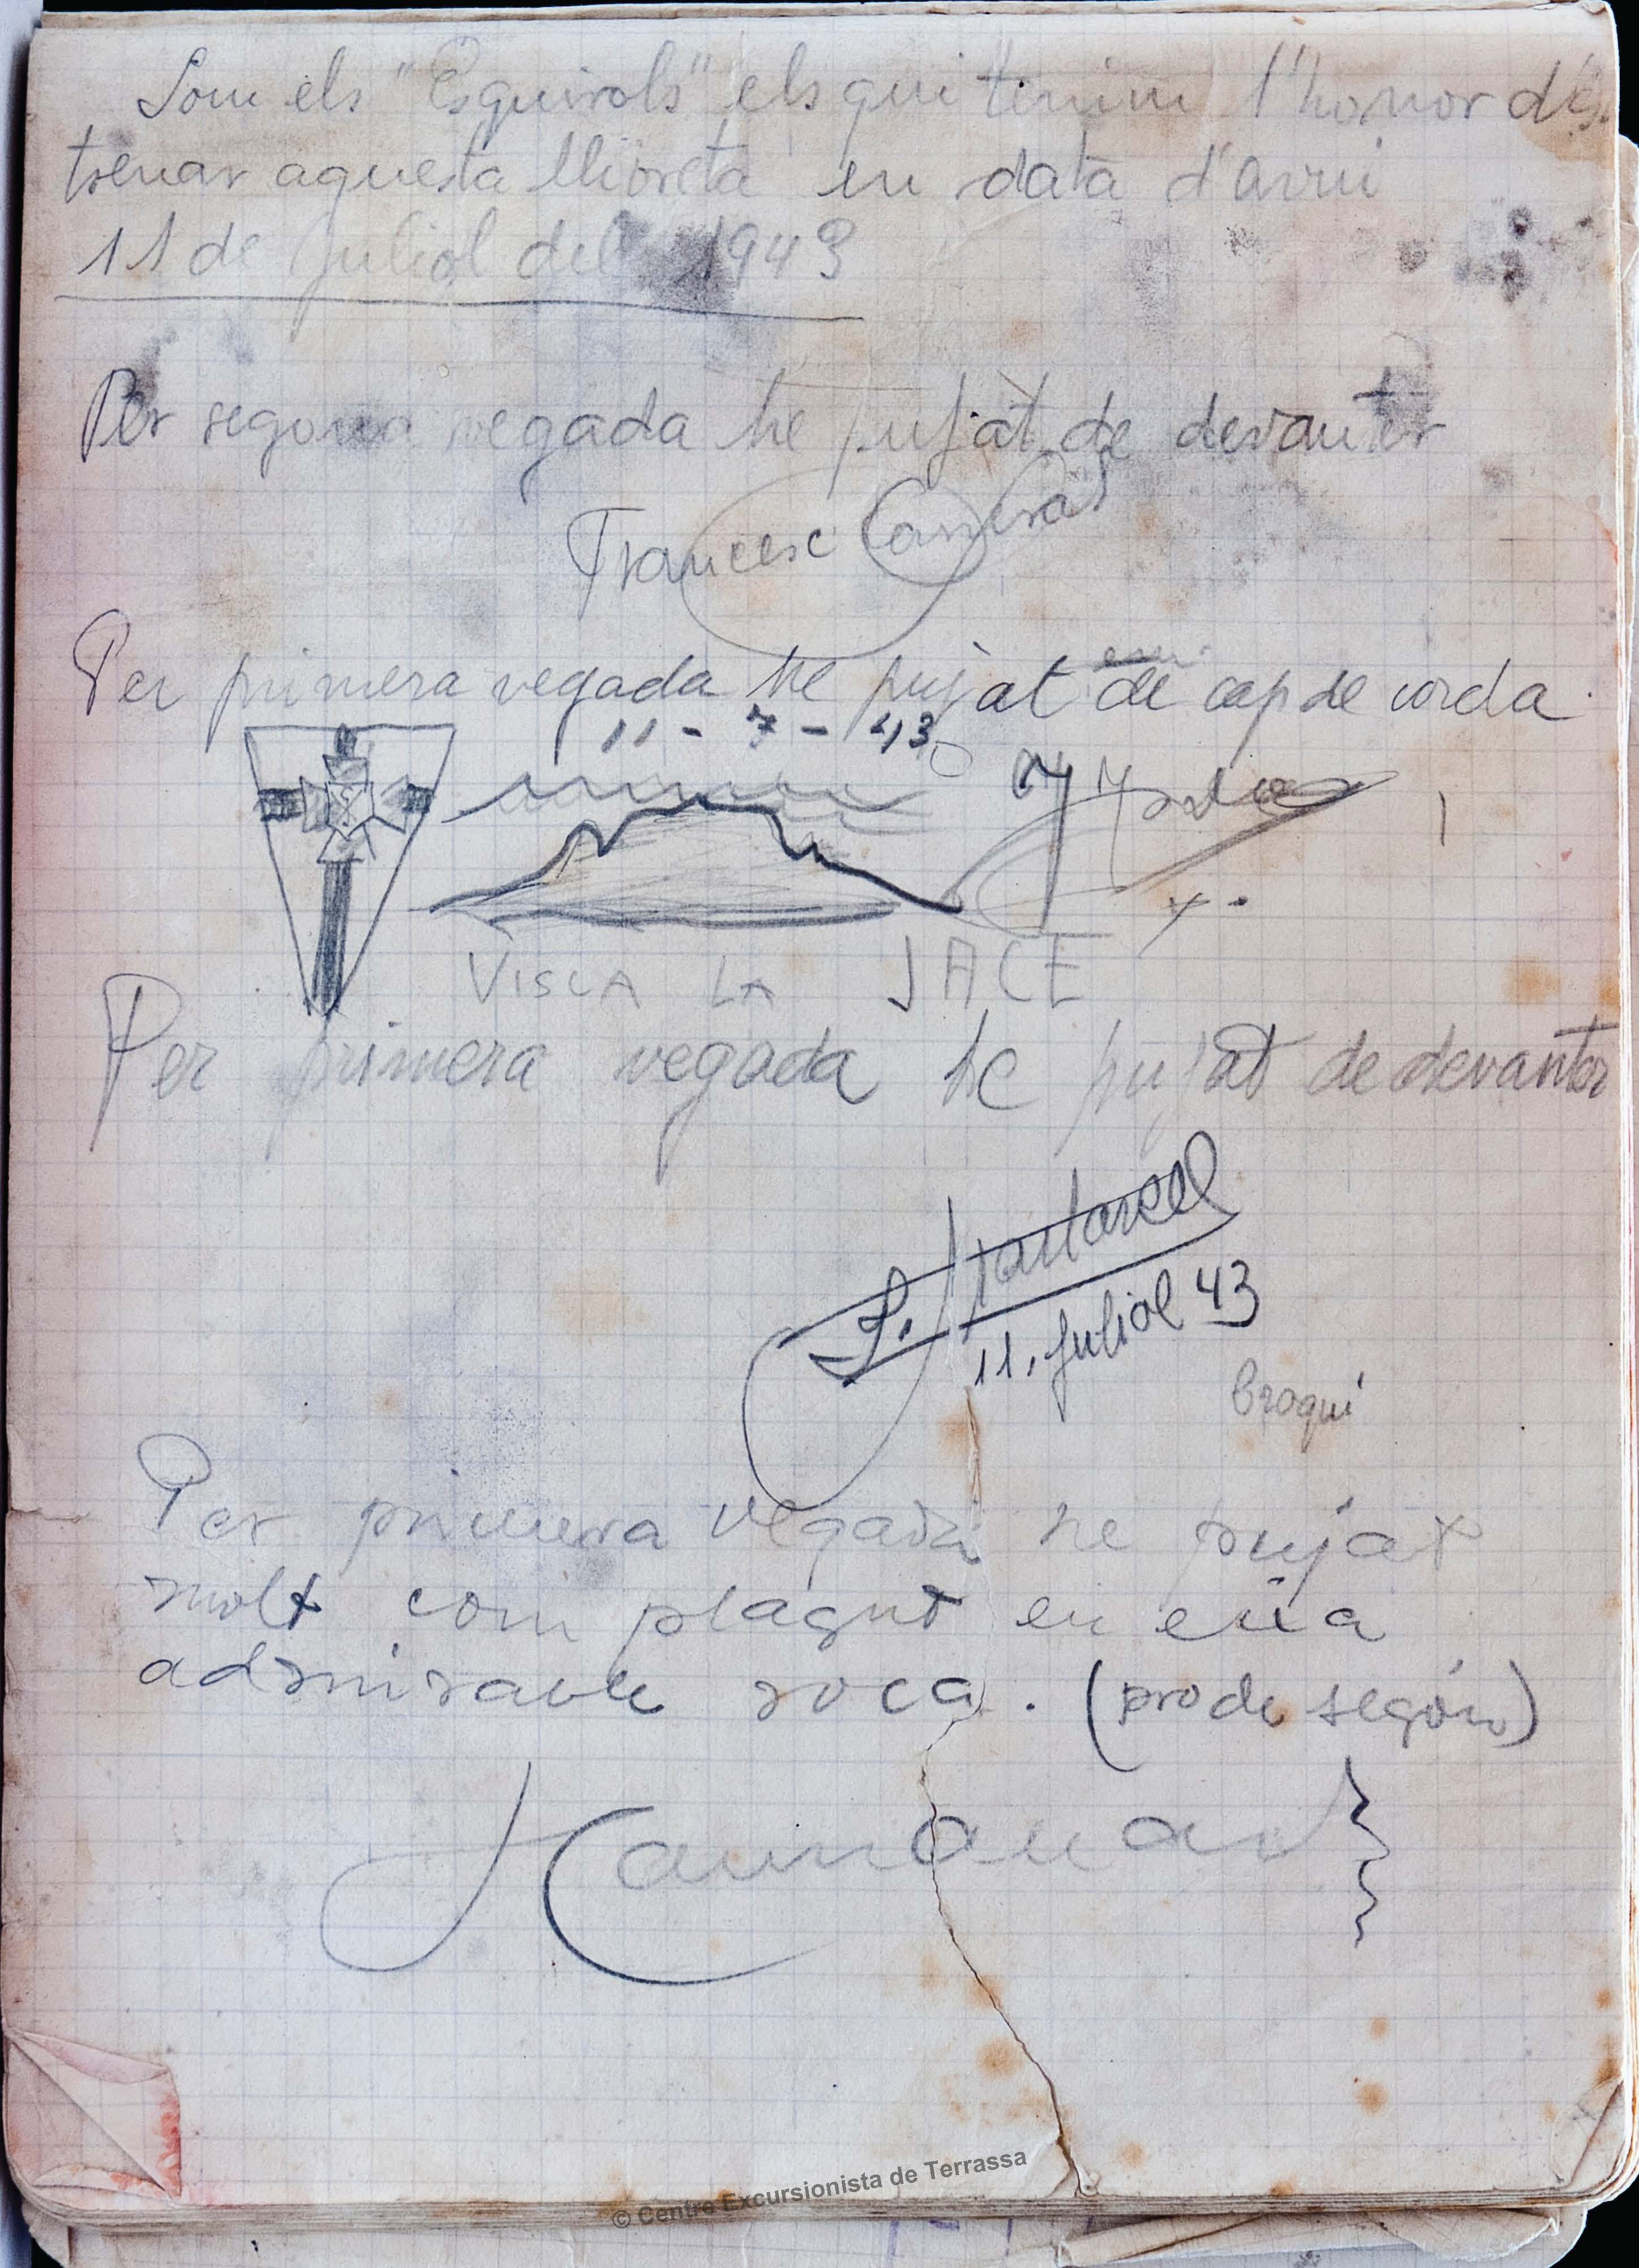 Som els "Esquirols" els qui tenim l'honor d'es.
trenar aquesta llibreta en data d'avui
11 de juliol del 1943
Per segona vegada he pujat de devanter
Francesc Carreras
em
Per primera vegada he pujat de cap de corda.
11 - 7 - 43
VISCA LA JACE
Per primera vegada he pujat de devanter
11, Juliol 43
Broqui
Per primera vegada he pujat
molt com plagut en eixa
admirable roca. (pro de segón)
© Centre Excursionista de Terrassa